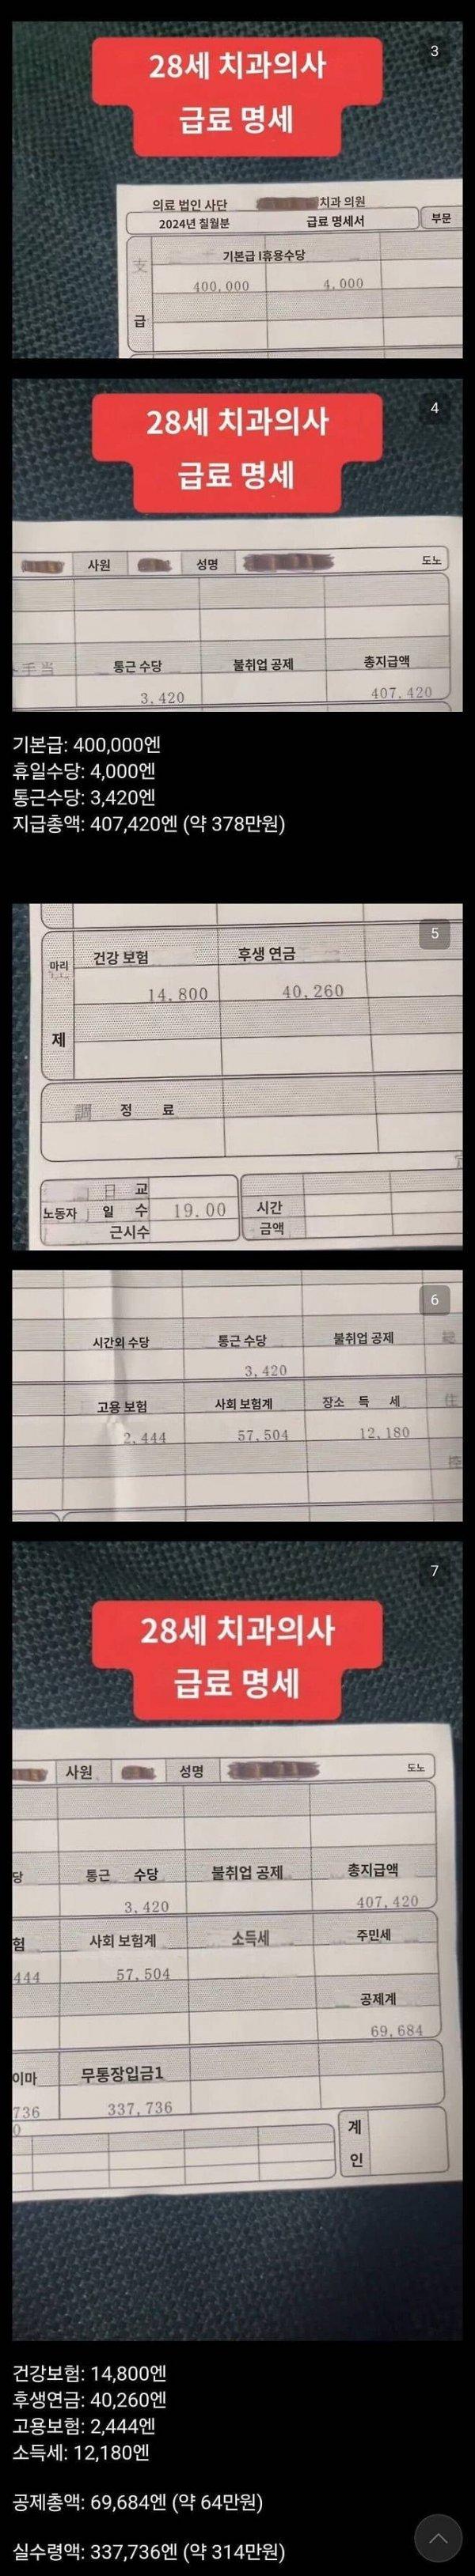 3
28세 치과의사
급료 명세
의료 법인 사단 치과 의원
2024년 칠월분 급료 명세서 부문
支
기본급 I휴용수당
400,000 4,000
급
4
28세 치과의사
급료 명세
사원 성명 도노
手当 통근 수당 불취업 공제 총지급액
3,420 407,420
기본급: 400,000엔
휴일수당: 4,000엔
통근수당: 3,420엔
지급총액: 407,420엔 (약 378만원)
5
마리 건강 보험 후생 연금
14,800 40,260
제
調 정 료
日 교
노동자 일 수 19.00 시간
근시수 금액
6
시간외 수당 통근 수당 불취업 공제
3,420
고용 보험 사회 보험계 장소 득 세 住
2,444 57,504 12,180
控
7
28세 치과의사
급료 명세
사원 성명 도노
당 통근 수당 불취업 공제 총지급액
3,420 407,420
험 사회 보험계 소득세 주민세
444 57,504
공제계
69,684
이마 무통장입금1
736 337,736
0
계
인
건강보험: 14,800엔
후생연금: 40,260엔
고용보험: 2,444엔
소득세: 12,180엔
공제총액: 69,684엔 (약 64만원)
실수령액: 337,736엔 (약 314만원)